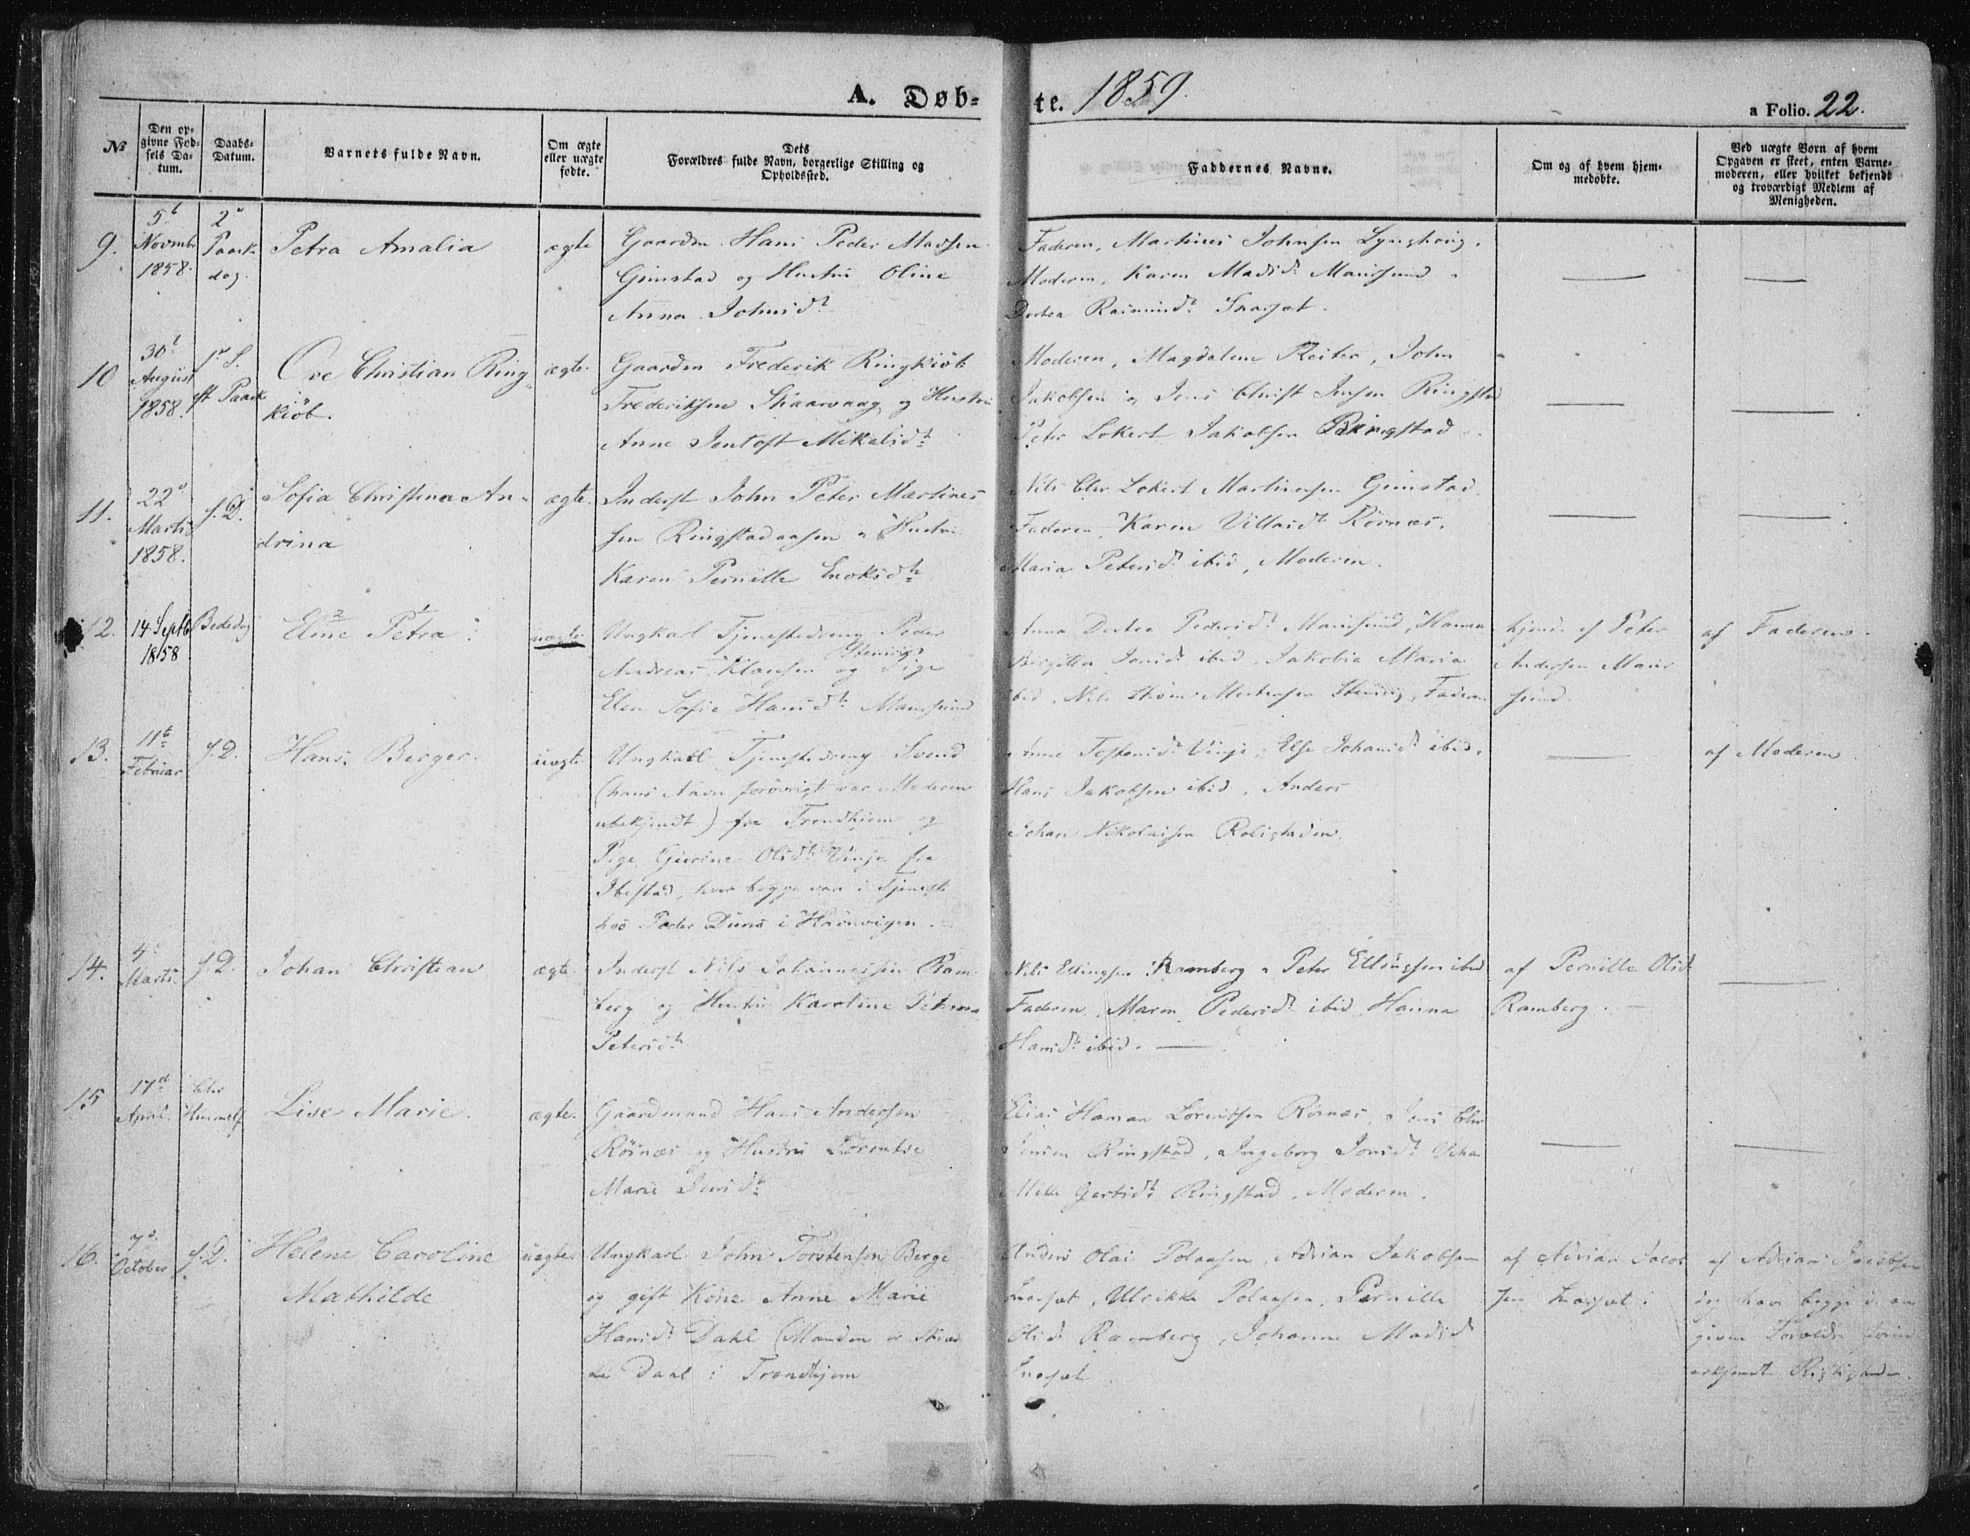 A. Døb-te. 1859.
a Folio. 22.
No
Den op-
givne Fød-
sels Da-
tum.
Daabs-
Datum.
Barnets fulde Navn.
Om ægte
eller uægte
fødte.
Dets
Forældres fulde Navn, borgerlige Stilling og
Opholdssted.
Faddernes Navne.
Om og af hvem hjem-
medøbte.
Ved uægte Børn af hvem
Opgaven er skeet, enten Barne-
moderen, eller hvilket bekjendt
og troværdigt Medlem af
Menigheden.
9.
5t
Novembr
1858.
2d
Paask
dag.
Petra Amalia
ægte
Gaardm. Hans Peder Madsen
Grimstad og Hustru Oline
Anna Johnsdt
Faderen, Martines Johnsen
Moderen, Karen Madsdt
Dortea
10
30t
August
1858.
1ste S.
eft Paask
Ove Christian Ring
kiöb.
ægte.
Gaardm Frederik Ringkiöb
Frederiksen Skaarvaag og Hustru
Anne Jentoft Mikalsdt
Moderen, Magdalene Reiter, John
Jakobsen og Jens Christ Jensen Ringstad
Peter Lokert Jakobsen Ringstad.
11.
22d
Marts
1858.
s. D.
Sofia Christina An-
drina
ægte.
Inderst John Peter Martines
sen Ringstadaasen & Hustru
Karen Pernille Enoksdt
Nils Chr Lokert Martinsen Grimstad
Faderen, Karen Villasdt Rørnæs,
Maria Petersdt ibid, Moderen.
12.
14 Septb
1858
Bededag
Eline Petra
uægte
Ungkarl Tjenestedreng Peder
Andreas Klausen og Pige
Elen Sofie Hansdt
Anna Dortea Pedersdt Hanna
Birgitta Jonsdt ibid, Jakobia Maria
ibid, Nils Mortensen Faderen
hjemd. af Peter
Andersen
sund
af Faderen.
13.
11te
Februar
s. D.
Hans Berger.
uægte
Ungkarl Tjenestedreng Svend
(hans Navn forøvrigt var Moderen
ubekjendt) fra Trondhjem og
Pige Gurine Olsdt Vinje fra
Ibestad, hvor begge var i Tjeneste
hos Peder Duns i Havnvigen.
Anne Tostensdt Vinje, Else Johansdt ibid,
Hans Jakobsen ibid, Anders
Johan Nikolaisen
af Moderen
14.
4d
Marts.
s. D.
Johan Christian
ægte.
Inderst Nils Johannessen Ram
berg og Hustru Karoline
Petersdt
Nils Ellingsen Ramberg & Peter Ellingsen ibid
Faderen, Maren Pedersdt ibid, Hanna
Hansdt ibid.
af Pernille Olsdt
Ramberg.
15
17d
April.
Chr
Himmelf
Lise Marie.
ægte.
Gaardmand Hans Andersen
Rörnæs og Hustru Lorentse
Marie Jensdt
Elias Haman Lorentsen Rörnæs, Jens Chr
Jensen Ringstad, Ingeborg Jonsdt
Gertsdt Ringstad, Moderen.
16.
7d
October
s. D.
Helene Caroline
Mathilde
uægte
Ungkarl John Torstensen Berge
og gift Kone Anne Marie
Hansdt Dahl (Manden er
Dahl i Trondhjem
Anders Olai Polausen, Adrian Jakobsen
Ulrikke Polausen, Pernille
Olsdt Ramberg, Johanne Madsd
af Adrian Jacob
sen
af Adrian Jacobsen
og have begge de an
givne Forældre
erkjendt Rigtigheden.